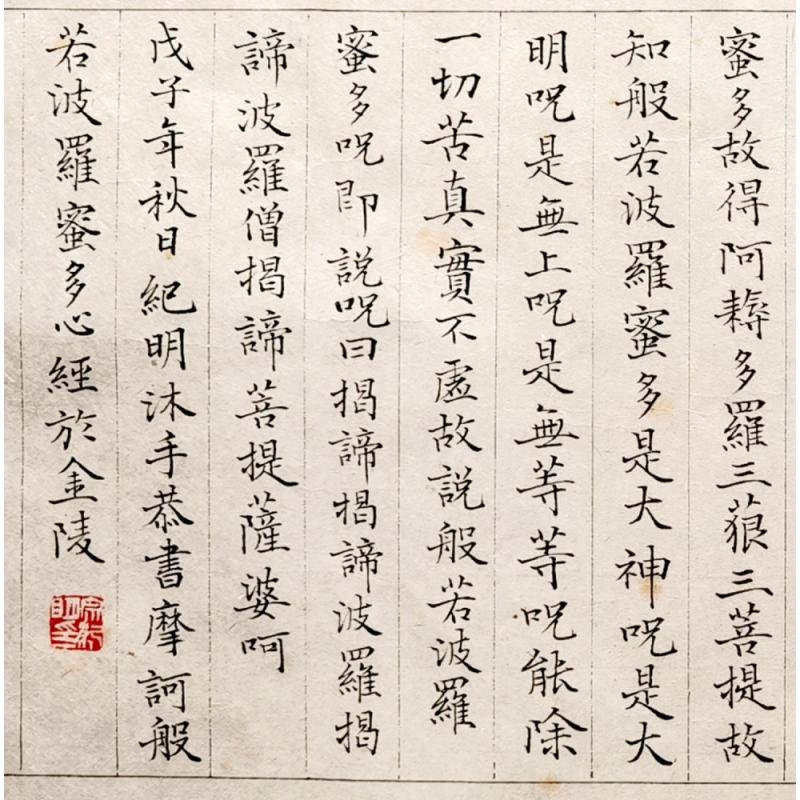 蜜多故得阿耨多羅三藐三菩提故
知般若波羅蜜多是大神呪是大
明呪是無上呪是無等等呪能除
一切苦真實不虛故說般若波羅
蜜多呪即說呪曰揭諦揭諦波羅揭
諦波羅僧揭諦菩提薩婆呵
戊子年秋日紀明沐手恭書摩訶般
若波羅蜜多心經於金陵